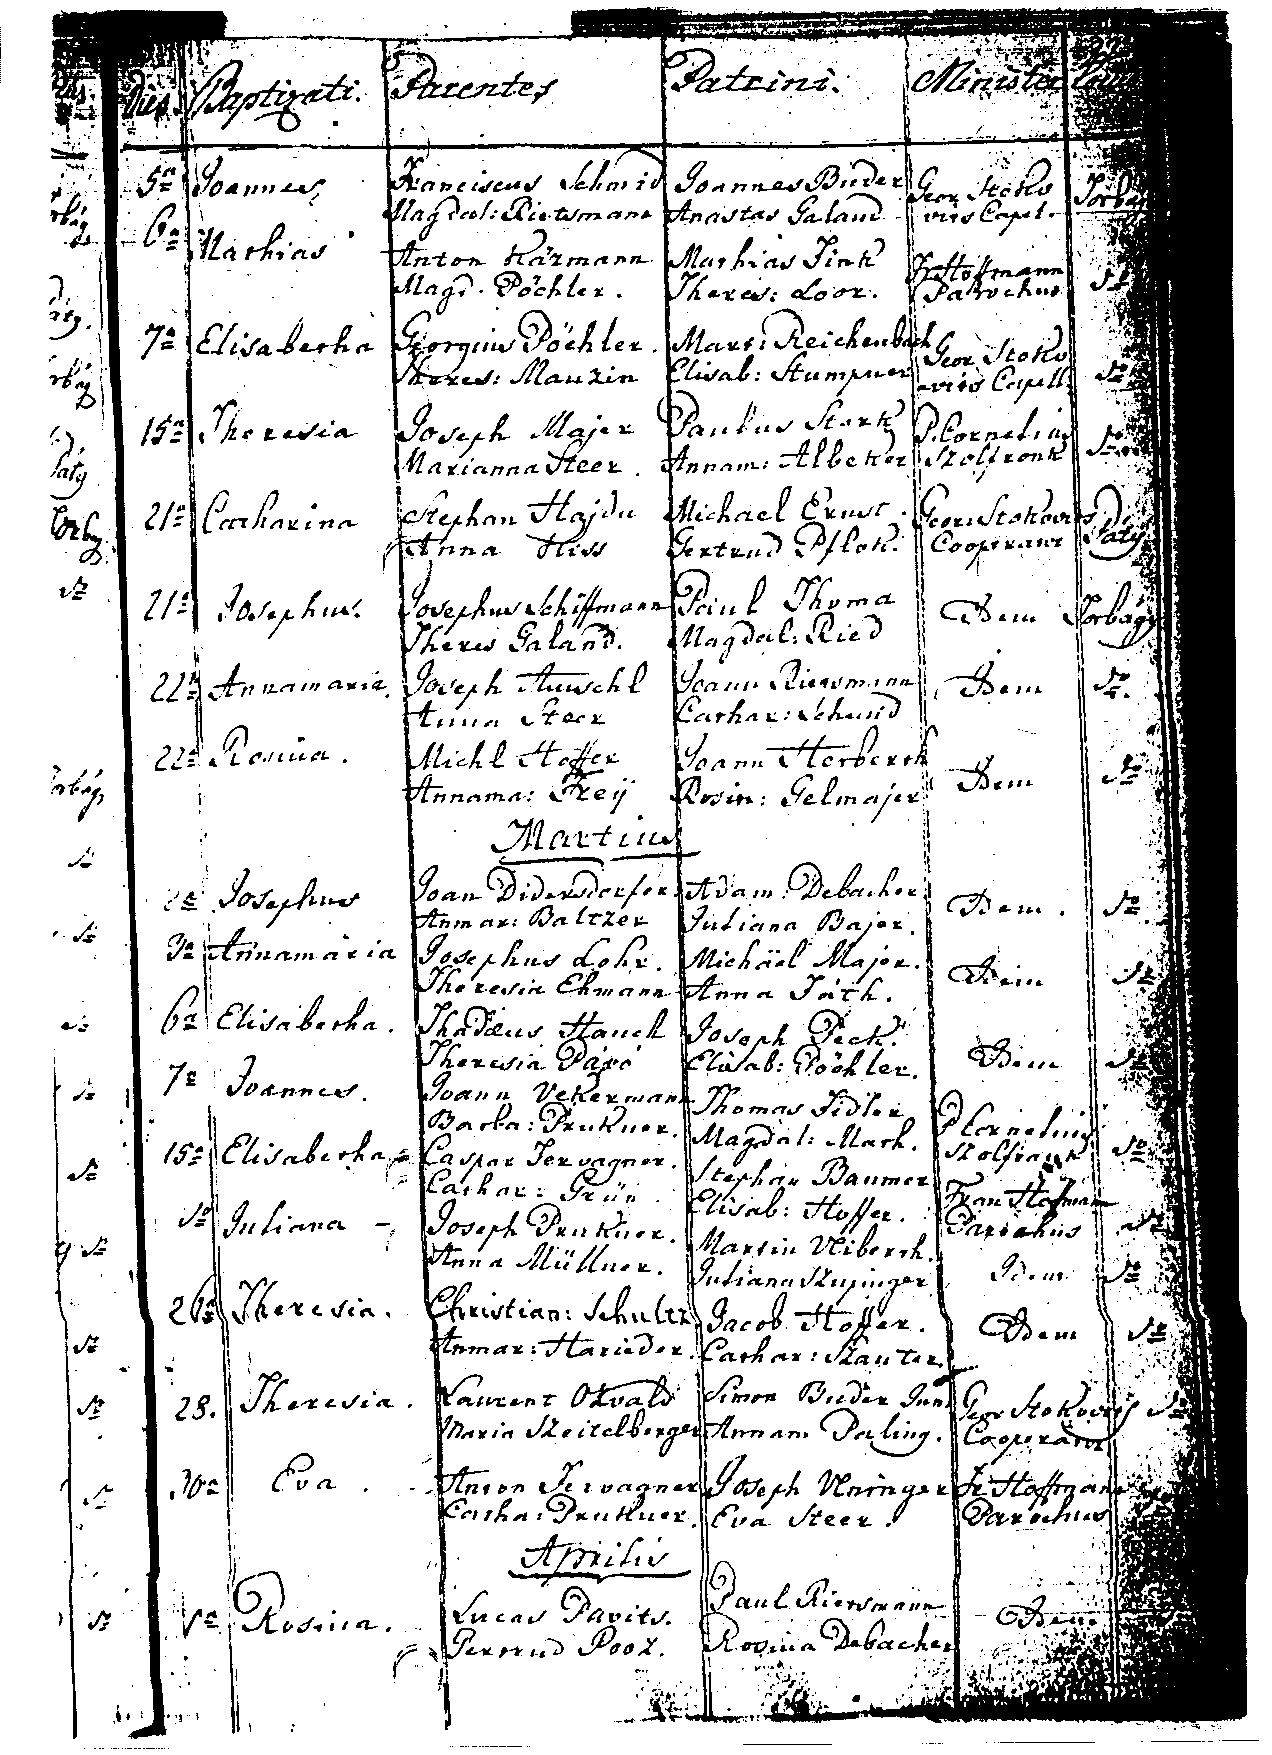 Dies. Baptizati. Parentes Patrini. Minister
5a Joannes Franciscus Schmid Joannes Bieder Geor. Stoko Torbágy
Magdal: Rietsmann Anastas Galand vits Capel.
6a Mathias Anton Kázmann Mathias Fink Fr. Hoffmann
Magd. Pöchler. Theres: Loor. Parochus do
7a Elisabetha Georgius Pöchler. Mart: Reichenbach Geor Stoko
Theres: Mauzin Elisab: Stumpner vits Capell. do
15a Theresia Joseph Majer Paulus Stark P. Cornelius do
Marianna Steer. Annam: Albeker Szolfronk
21a Catharina Stephan Hajdu Michael Ernst. Geor: Stokovits Páty
Anna Hiss Gertrud Pflok. Cooperator
21a Josephus. Josephus Schiffmann Paul Thoma Idem Torbágy
Theres Galand. Magdal: Ried
22a Annamaria. Joseph Auschl Joann Rietsmann Idem do.
Anna Steer Cathar: Schmid
22a Rosina. Michl Hoffer Joann Herberth Idem do
Annama: Freÿ Rosin: Gelmajer
Martius
2a Josephus Joan Didersdorfer Adam Debacher Idem. do
Anmar: Baltzer Juliana Bajer.
3a Annamaria Josephus Lohr. Michäel Majer. Idem do
Theresia Ehmann Anna Fáth.
6a Elisabetha. Thadæus Hauck Joseph Peck. Idem do
Theresia Páró Elisab: Pöchler.
7a Joannes. Joann Vekermann Thomas Fidler P. Cornelius do
Barba: Prukner. Magdal: Mark. Szolfrank
15a Elisabetha Caspar Tervagner. Stephan Baumer Fran Hofmann do
Cathar: Grün Elisab: Hoffer. Parochus
do Juliana - Joseph Prukner. Martin Viberth. Idem do
Anna Müllner. Juliana Szupinger
26a Theresia. Christian: Schultz Jacob Hoffer. Idem do
Anmar: Harieder. Cathar: Szauter
28. Theresia. Laurent Osvald Simon Bieder Jun: Geor Stokovits do
Maria Szeitelberger Annam Paling. Cooperator
30a Eva. Anton Tervagner Joseph Uninger Fr. Hoffmann
Catha: Prukner. Eva Steer. Parochus
Aprilis
1a Rosina. Lucas Pavits. Paul Rietsmann Idem
Gertrud Pooz. Rosina Debacher